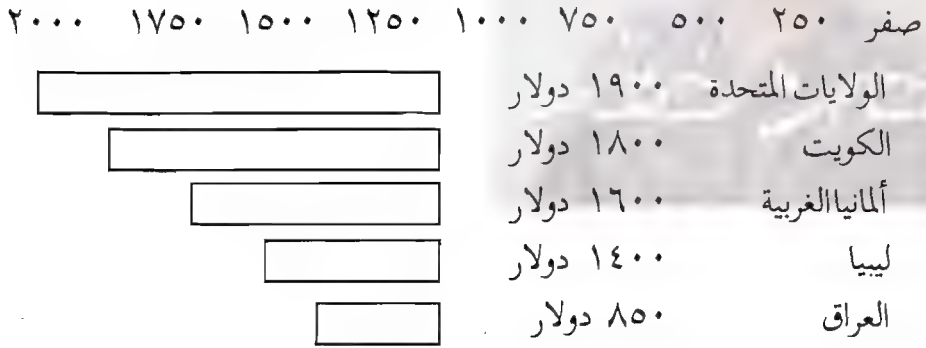 صفر ٢٥٠ ٥٠٠ ٧٥٠ ١٠٠٠ ١٢٥٠ ١٥٠٠ ١٧٥٠ ٢٠٠٠
الولايات المتحدة ١٩٠٠ دولار
الكويت ١٨٠٠ دولار
ألمانيا الغربية ١٦٠٠ دولار
ليبيا ١٤٠٠ دولار
العراق ٨٥٠ دولار